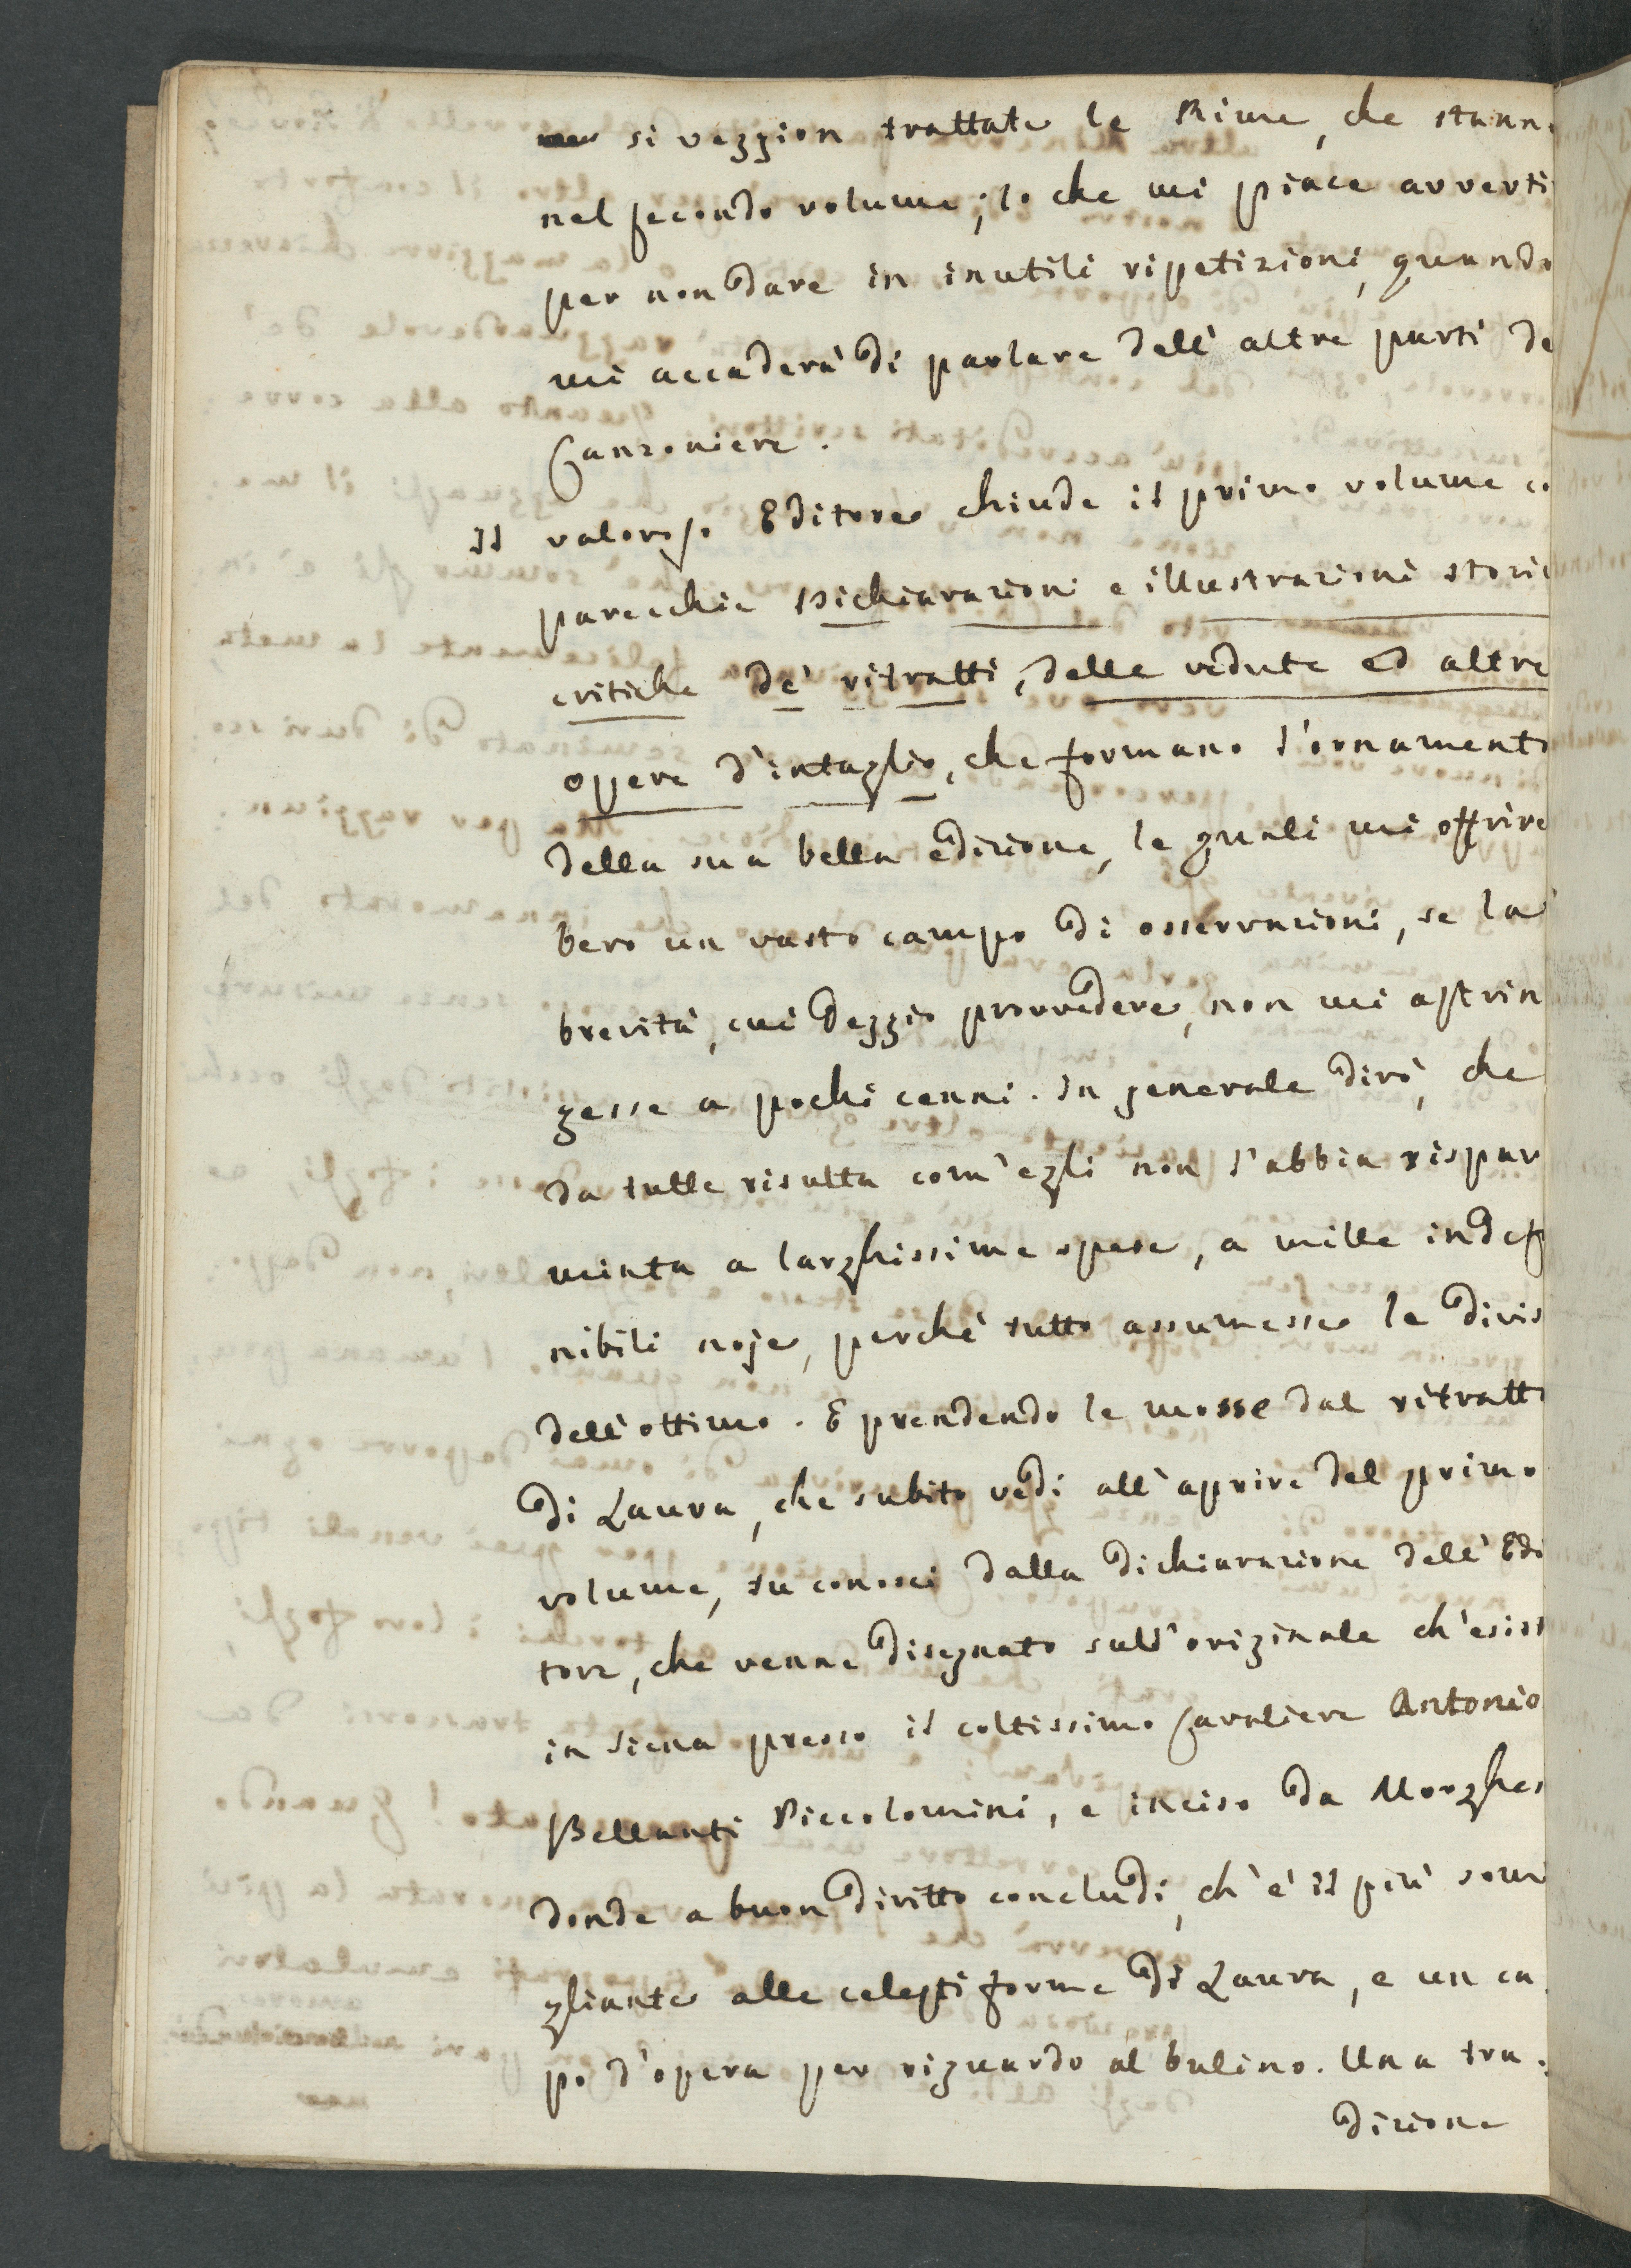 si veggion trattate le Rime, che stann
nel secondo volume; lo che mi piace avverti
per non dare in inutili ripetizioni, quando
mi accaderà di parlare dell'altre parti de
Canzoniere.
Il valoroso Editore chiude il primo volume co
parecchie Dichiarazioni e illustrazioni storic
critiche de' ritratti, delle vedute ed altre
opere d'intaglio, che formano l'ornamento
della sua bella edizione, le quali mi offrire
bero un vasto campo di osservazioni, se la
brevità, cui deggio provvedere, non mi astrin
gesse a pochi cenni. In generale dirò, che
da tutte risulta com'egli non l'abbia rispar
miata a larghissime spese, a mille indef
nibili noje, perché tutto assumesse le divis
dell'ottimo. E prendendo le mosse dal ritratto
di Laura, che subito vedi all'aprire del primo
volume, tu conosci dalla dichiarazione dell'Edi
tore, che venne disegnato sull'originale ch'esist
in Siena presso il coltissimo Cavaliere Antonio
Bellanti Piccolomini, e inciso da Morghen
donde a buon diritto concludi, ch'è il più somi
gliante alle celesti forme di Laura, e un ca
po d'opera per riguardo al bulino. Una tra.
dizione